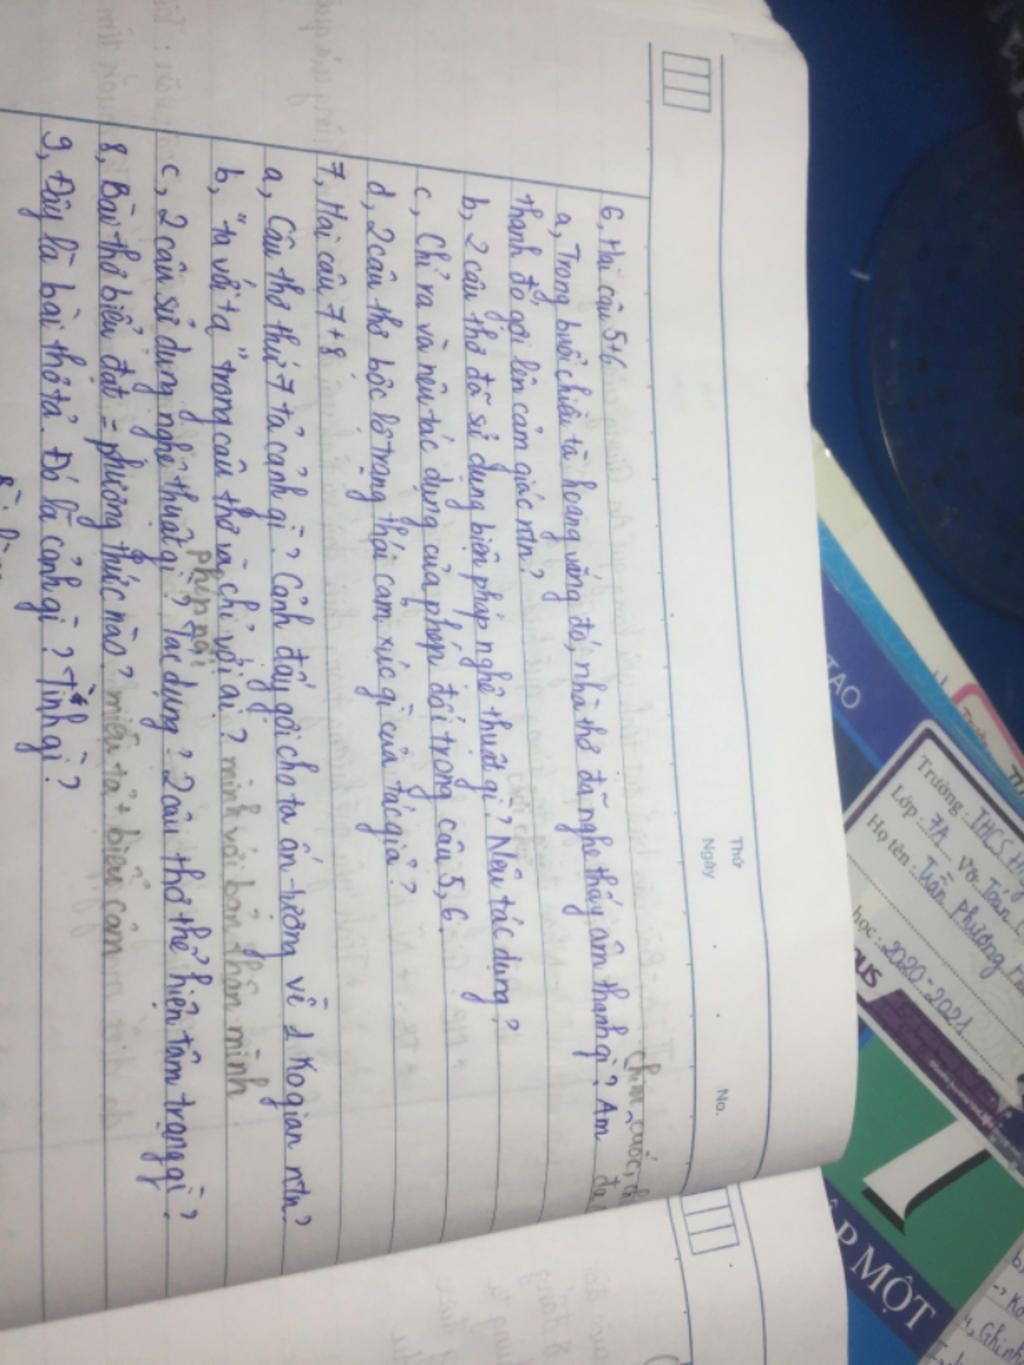 Thứ
Ngày
No.
6, Hai câu 5+6
chim cuốc,
a, Trong buổi chiều tà hoang vắng đó, nhà thơ đã nghe thấy âm thanh gì? Âm
thanh đó gợi lên cảm giác ntn?
b, 2 câu thơ đã sử dụng biện pháp nghệ thuật gì? Nêu tác dụng?
c, Chỉ ra và nêu tác dụng của phép đối trong câu 5, 6.
d, 2 câu thơ bộc lộ trạng thái cảm xúc gì của tác giả?
7, Hai câu 7+8
a, Câu thơ thứ 7 tả cảnh gì? Cảnh đấy gợi cho ta ấn tượng về 1 ko gian ntn?
b, "ta với ta" trong câu thơ và chỉ với ai? mình với bản thân mình
phép đối
c, 2 câu sử dụng nghệ thuật gì? Tác dụng? 2 câu thơ thể hiện tâm trạng gì?
8, Bài thơ biểu đạt = phương thức nào? miêu tả + biểu cảm
9, Đây là bài thơ tả. Đó là cảnh gì? Tình gì?
TẠO
Trường: THCS
Lớp: 7A Vở: Toán
Họ tên: Trần Phương
học: 2020-2021
7
TẬP MỘT